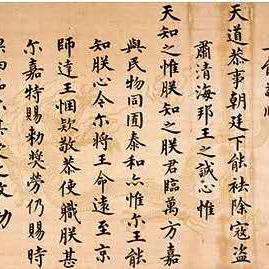 天道恭事朝廷下能祛除寇盜
肅清海邦王之誠心惟
天知之惟朕知之朕君臨萬方嘉
與民物同囿泰和亦惟尔王能
知朕心今尔將王命遠至京
師達王悃欵敬恭使職朕甚
尔嘉特賜勑奬勞仍賜時